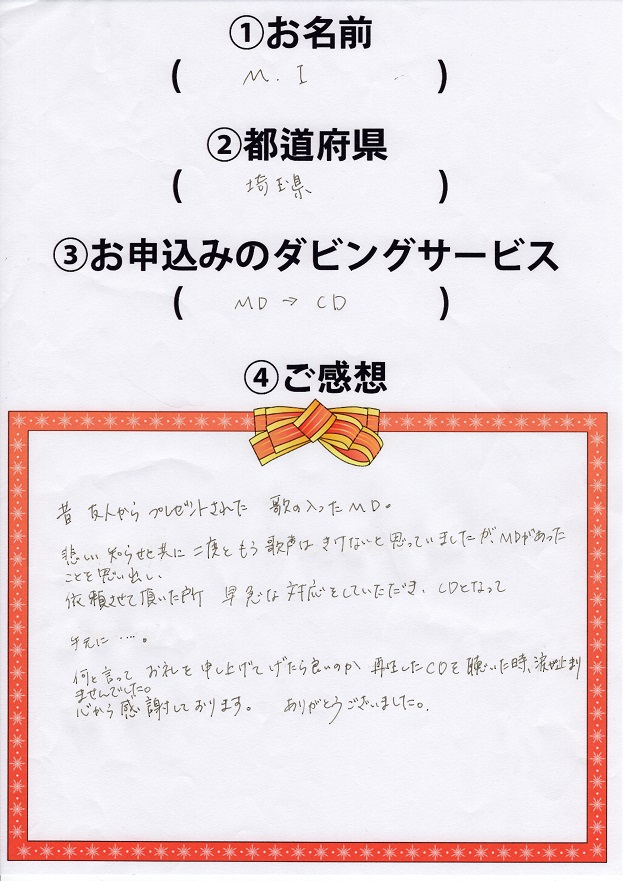 ①お名前
( M. I )
②都道府県
( 埼玉県 )
③お申込みのダビングサービス
( MD → CD )
④ご感想
昔 友人から プレゼントされた 歌の入ったMD。
悲しい知らせと共に 二度ともう歌声は きけないと思っていましたが、MDがあった
ことを思い出し
依頼させて頂いた所 早急な対応をしていただき、CDとなって
手元に …。
何と言って お礼を申し上げてげたら良いのか 再生したCDを聴いた時、涙が止まり
ませんでした。
心から感謝しております。 ありがとうございました。